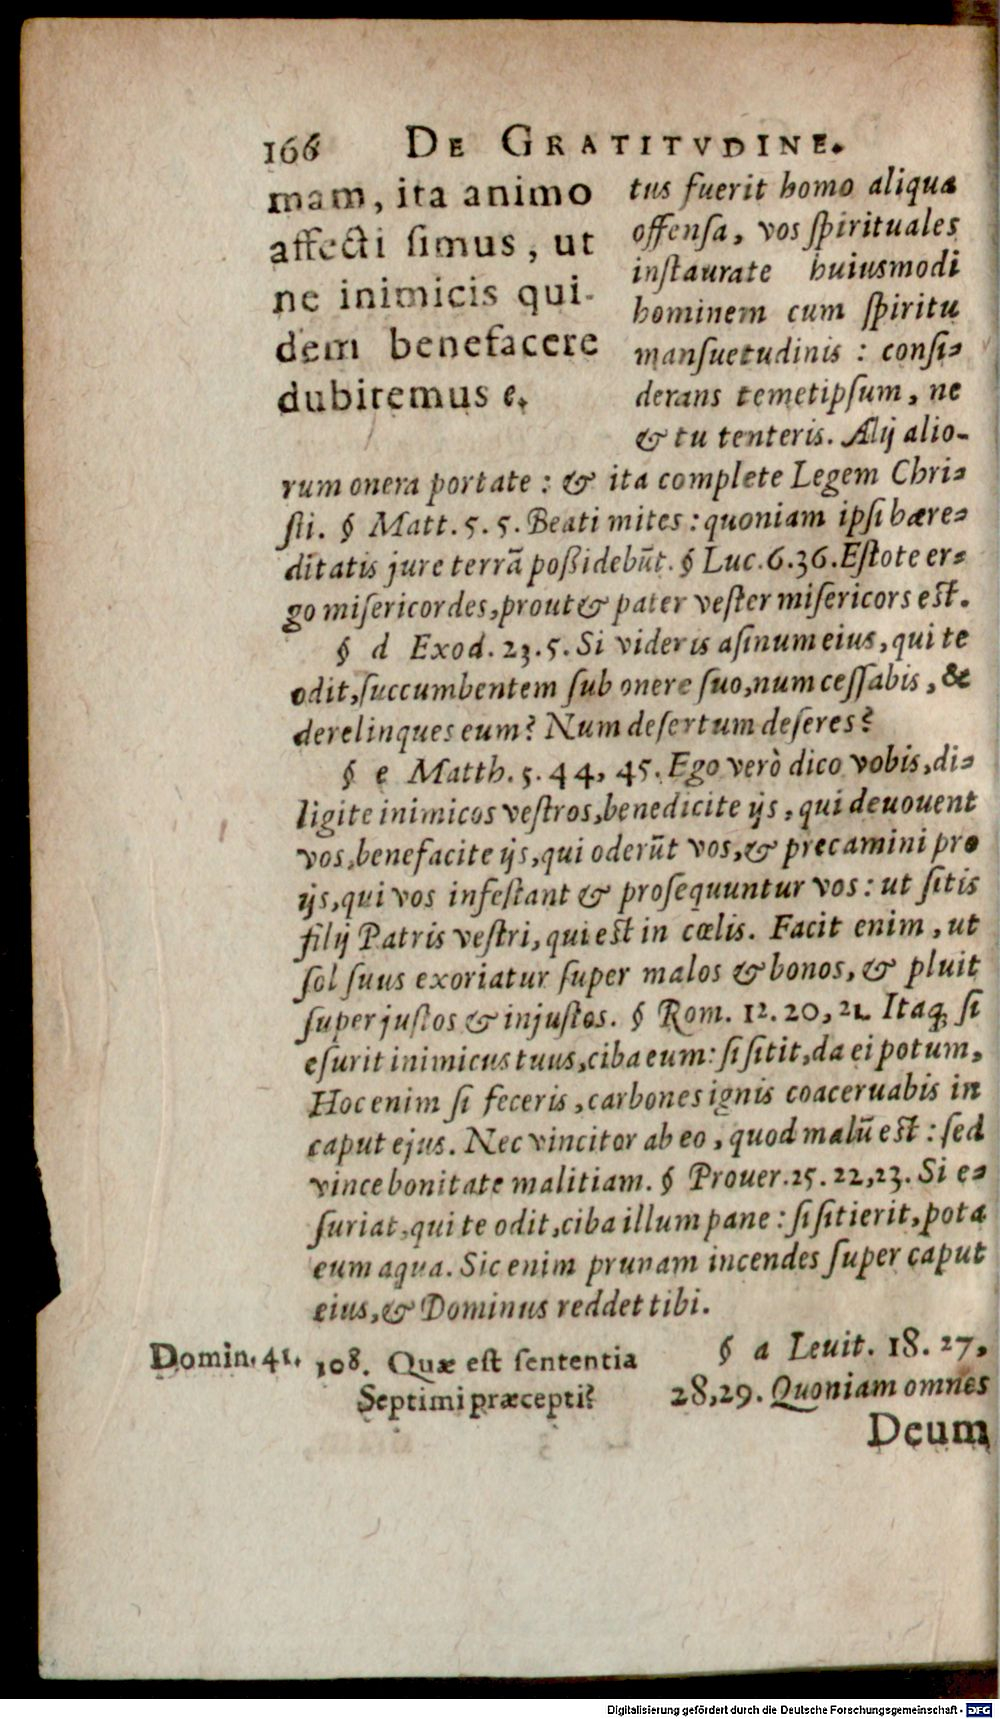 166 DE GRATITVDINE.
mam, ita animo
affecti ſimus, ut
ne inimicis qui-
dem benefacere
dubitemus e.
tus fuerit homo aliqua
offenſa, vos ſpirituales
inſtaurate huiusmodi
hominem cum ſpiritu
manſuetudinis : conſi-
derans temetipſum, ne
& tu tenteris. Alij alio-
rum onera portate : & ita complete Legem Chri-
ſti. § Matt. 5. 5. Beati mites : quoniam ipſi hære-
ditatis jure terrā poßidebūt. § Luc. 6. 36. Eſtote er-
go miſericordes, prout & pater veſter miſericors eſt.
§ d Exod. 23. 5. Si videris aſinum eius, qui te
odit, ſuccumbentem ſub onere ſuo, num ceſſabis, &
derelinques eum? Num deſertum deſeres?
§ e Matth. 5. 44, 45. Ego verò dico vobis, di-
ligite inimicos veſtros, benedicite ijs, qui deuouent
vos, benefacite ijs, qui oderūt vos, & precamini pro
ijs, qui vos infeſtant & proſequuntur vos : ut ſitis
filij Patris veſtri, qui eſt in cœlis. Facit enim, ut
ſol ſuus exoriatur ſuper malos & bonos, & pluit
ſuper juſtos & injuſtos. § Rom. 12. 20, 21. Itaq; ſi
eſurit inimicus tuus, ciba eum : ſi ſitit, da ei potum,
Hoc enim ſi feceris, carbones ignis coaceruabis in
caput ejus. Nec vincitor ab eo, quod malū eſt : ſed
vince bonitate malitiam. § Prouer. 25. 22, 23. Si e-
ſuriat, qui te odit, ciba illum pane : ſi ſitierit, pota
eum aqua. Sic enim prunam incendes ſuper caput
eius, & Dominus reddet tibi.
Domin. 41. 108. Quæ eſt ſententia
Septimi præcepti?
§ a Leuit. 18. 27,
28, 29. Quoniam omnes
Deum
Digitalisierung gefördert durch die Deutsche Forschungsgemeinschaft - DFG